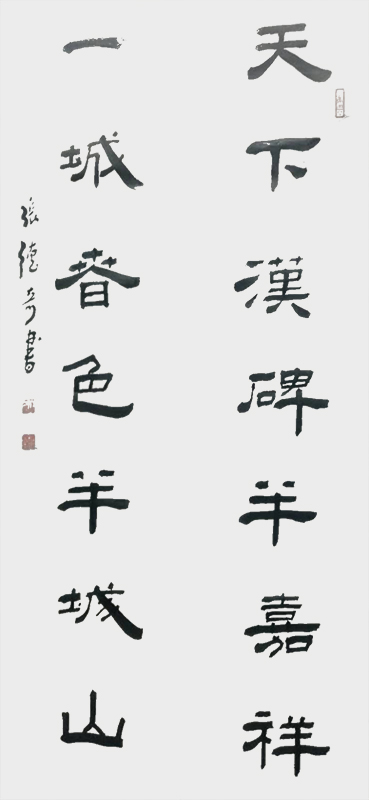 天下漢碑羊嘉祥
一城春色羊城山
張德奇書